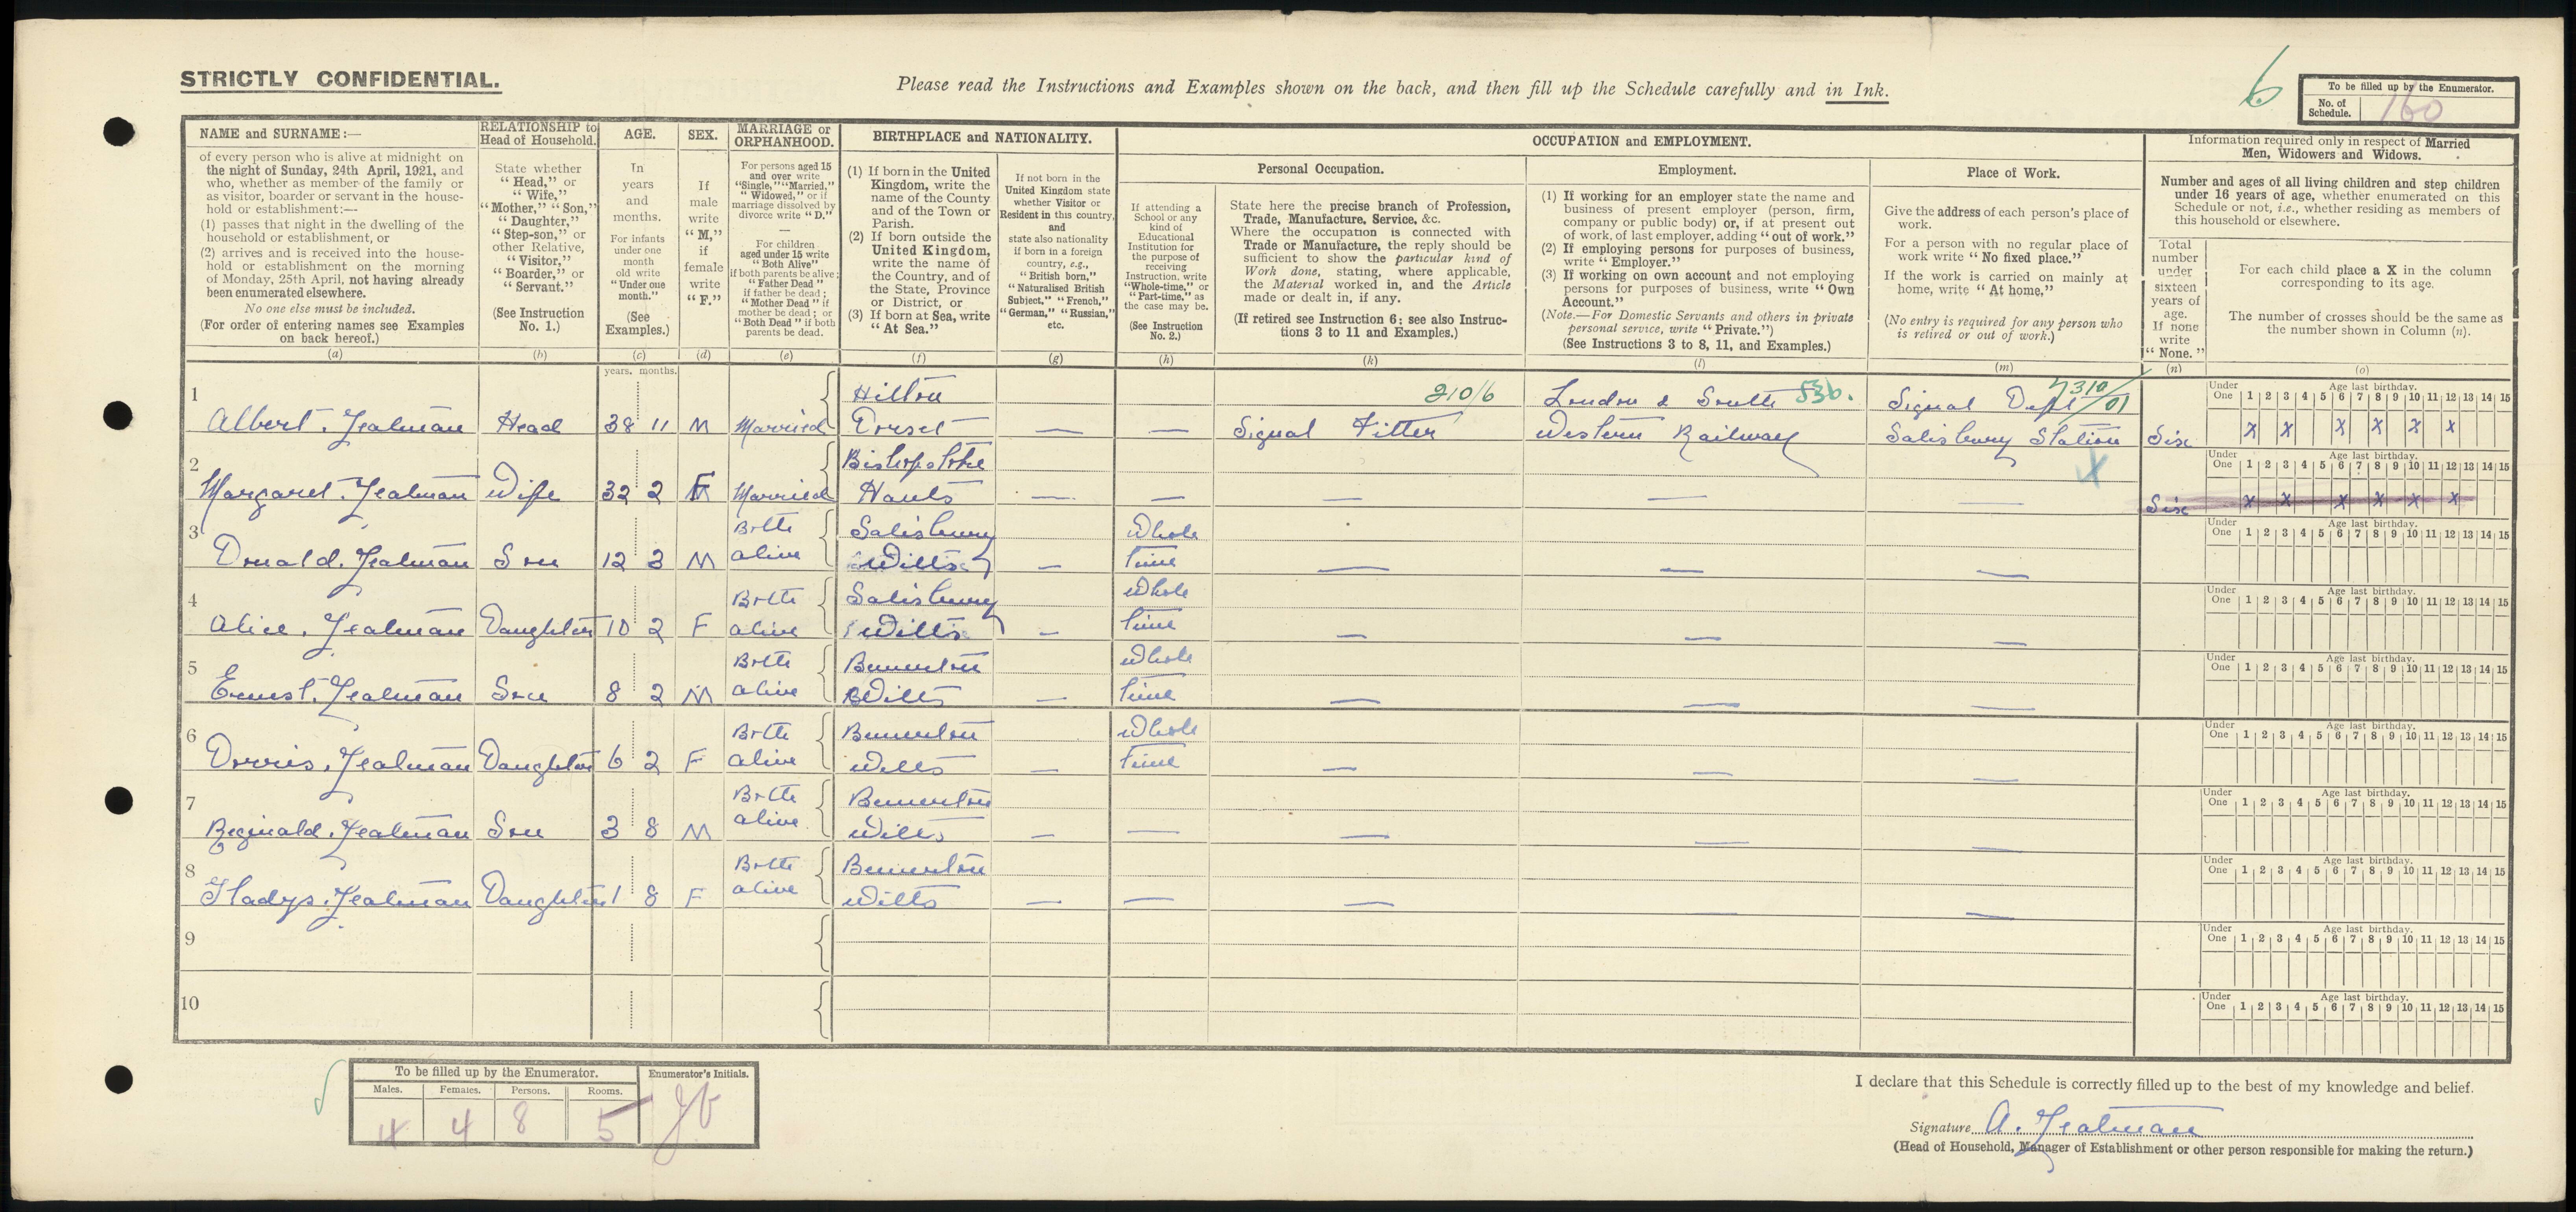 STRICTLY CONFIDENTIAL.
Please read the Instructions and Examples shown on the back, and then fill up the Schedule carefully and in Ink.
6
To be filled up by the Enumerator.
No. of Schedule. 160
NAME and SURNAME:—
of every person who is alive at midnight on
the night of Sunday, 24th April, 1921, and
who, whether as member of the family or
as visitor, boarder or servant in the house-
hold or establishment:—
(1) passes that night in the dwelling of the
household or establishment, or
(2) arrives and is received into the house-
hold or establishment on the morning
of Monday, 25th April, not having already
been enumerated elsewhere.
No one else must be included.
(For order of entering names see Examples
on back hereof.)
(a)
RELATIONSHIP to
Head of Household.
State whether
"Head," or
"Wife,"
"Mother," "Son,"
"Daughter,"
"Step-son," or
other Relative,
"Visitor,"
"Boarder," or
"Servant."
(See Instruction
No. 1.)
(b)
AGE.
In
years
and
months.
For infants
under one
month
old write
"Under one
month."
(See
Examples.)
(c)
SEX.
If
male
write
"M,"
if
female
write
"F."
(d)
MARRIAGE or
ORPHANHOOD.
For persons aged 15
and over write
"Single," "Married,"
"Widowed," or if
marriage dissolved by
divorce write "D."
—
For children
aged under 15 write
"Both Alive"
if both parents be alive;
"Father Dead"
if father be dead;
"Mother Dead" if
mother be dead; or
"Both Dead" if both
parents be dead.
(e)
BIRTHPLACE and NATIONALITY.
(1) If born in the United
Kingdom, write the
name of the County
and of the Town or
Parish.
(2) If born outside the
United Kingdom,
write the name of
the Country, and of
the State, Province
or District, or
(3) If born at Sea, write
"At Sea."
(f)
If not born in the
United Kingdom state
whether Visitor or
Resident in this country,
and
state also nationality
if born in a foreign
country, e.g.,
"British born,"
"Naturalised British
Subject," "French,"
"German," "Russian,"
etc.
(g)
OCCUPATION and EMPLOYMENT.
If attending a
School or any
kind of
Educational
Institution for
the purpose of
receiving
Instruction, write
"Whole-time," or
"Part-time," as
the case may be.
(See Instruction
No. 2.)
(h)
Personal Occupation.
State here the precise branch of Profession,
Trade, Manufacture, Service, &c.
Where the occupation is connected with
Trade or Manufacture, the reply should be
sufficient to show the particular kind of
Work done, stating, where applicable,
the Material worked in, and the Article
made or dealt in, if any.
(If retired see Instruction 6; see also Instruc-
tions 3 to 11 and Examples.)
(k)
Employment.
(1) If working for an employer state the name and
business of present employer (person, firm,
company or public body) or, if at present out
of work, of last employer, adding "out of work."
(2) If employing persons for purposes of business,
write "Employer."
(3) If working on own account and not employing
persons for purposes of business, write "Own
Account."
(Note.—For Domestic Servants and others in private
personal service, write "Private.")
(See Instructions 3 to 8, 11, and Examples.)
(l)
Place of Work.
Give the address of each person's place of
work.
For a person with no regular place of
work write "No fixed place."
If the work is carried on mainly at
home, write "At home."
(No entry is required for any person who
is retired or out of work.)
(m)
Information required only in respect of Married
Men, Widowers and Widows.
Number and ages of all living children and step children
under 16 years of age, whether enumerated on this
Schedule or not, i.e., whether residing as members of
this household or elsewhere.
Total
number
under
sixteen
years of
age.
If none
write
"None."
(n)
For each child place a X in the column
corresponding to its age.
The number of crosses should be the same as
the number shown in Column (n).
(o)
years. months.
1 Albert. Yeatman Head 38 11 M Married Hilton Dorset — — Signal Fitter 210/6 London & South Western Railway 536. Signal Dept Salisbury Station 7310/01 Six
Under One 1 2 3 4 5 6 7 8 9 10 11 12 13 14 15 Age last birthday.
X X X X X X
2 Margaret. Yeatman Wife 32 2 F Married Bishopstoke Hants — — — — — X Six
Under One 1 2 3 4 5 6 7 8 9 10 11 12 13 14 15 Age last birthday.
X X X X X X
3 Donald. Yeatman Son 12 3 M Both alive Salisbury Wilts — Whole time — — —
Under One 1 2 3 4 5 6 7 8 9 10 11 12 13 14 15 Age last birthday.
4 Alice. Yeatman Daughter 10 2 F Both alive Salisbury Wilts — Whole time — — —
Under One 1 2 3 4 5 6 7 8 9 10 11 12 13 14 15 Age last birthday.
5 Ernest. Yeatman Son 8 2 M Both alive Bemerton Wilts — Whole time — — —
Under One 1 2 3 4 5 6 7 8 9 10 11 12 13 14 15 Age last birthday.
6 Dorris. Yeatman Daughter 6 2 F Both alive Bemerton Wilts — Whole Time — — —
Under One 1 2 3 4 5 6 7 8 9 10 11 12 13 14 15 Age last birthday.
7 Reginald. Yeatman Son 3 8 M Both alive Bemerton Wilts — — — — —
Under One 1 2 3 4 5 6 7 8 9 10 11 12 13 14 15 Age last birthday.
8 Gladys. Yeatman Daughter 1 8 F Both alive Bemerton Wilts — — — — —
Under One 1 2 3 4 5 6 7 8 9 10 11 12 13 14 15 Age last birthday.
9
Under One 1 2 3 4 5 6 7 8 9 10 11 12 13 14 15 Age last birthday.
10
Under One 1 2 3 4 5 6 7 8 9 10 11 12 13 14 15 Age last birthday.
To be filled up by the Enumerator. Enumerator's Initials.
Males. Females. Persons. Rooms.
4 4 8 5
I declare that this Schedule is correctly filled up to the best of my knowledge and belief.
Signature A. Yeatman
(Head of Household, Manager of Establishment or other person responsible for making the return.)